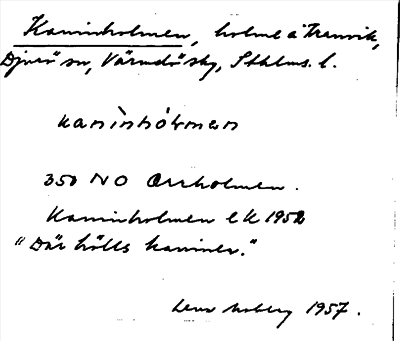 Kaninholmen, holme å Tranvik,
Djurö sn, Värmdö skg, Sthlms. l.
kanìnhólmen
350 NO Orrholmen.
Kaninholmen EK 1952
"Där hölls kaniner."
Lena Moberg 1957.